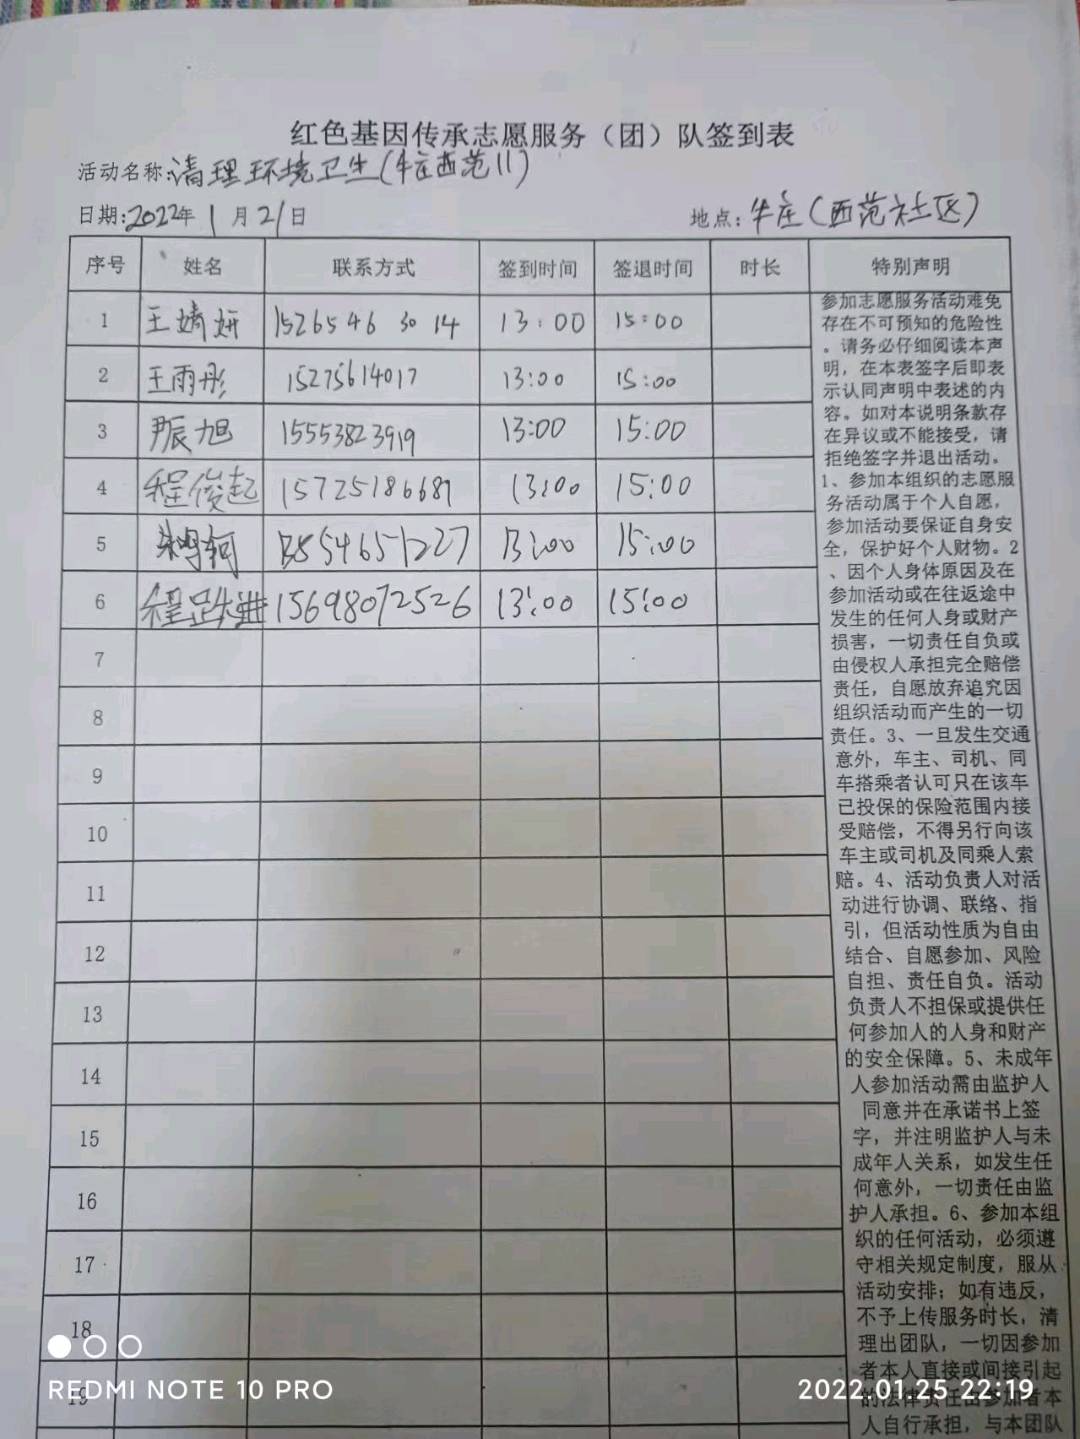 红色基因传承志愿服务（团）队签到表
活动名称:清理环境卫生(牛庄西范11)
日期:2022年1月21日
地点:牛庄(西范社区)
序号 姓名 联系方式 签到时间 签退时间 时长 特别声明
1 王婧妍 15265463014 13:00 15:00
2 王雨彤 15275614017 13:00 15:00
3 尹辰旭 15553823919 13:00 15:00
4 程俊起 15725186687 13:00 15:00
5 13:00 15:00
6 15698072526 13:00 15:00
7
8
9
10
11
12
13
14
15
16
17
18
19
参加志愿服务活动难免
存在不可预知的危险性
。请务必仔细阅读本声
明，在本表签字后即表
示认同声明中表述的内
容。如对本说明条款存
在异议或不能接受，请
拒绝签字并退出活动。
1、参加本组织的志愿服
务活动属于个人自愿，
参加活动要保证自身安
全，保护好个人财物。2
、因个人身体原因及在
参加活动或在往返途中
发生的任何人身或财产
损害，一切责任自负或
由侵权人承担完全赔偿
责任，自愿放弃追究因
组织活动而产生的一切
责任。3、一旦发生交通
意外，车主、司机、同
车搭乘者认可只在该车
已投保的保险范围内接
受赔偿，不得另行向该
车主或司机及同乘人索
赔。4、活动负责人对活
动进行协调、联络、指
引，但活动性质为自由
结合、自愿参加、风险
自担、责任自负。活动
负责人不担保或提供任
何参加人的人身和财产
的安全保障。5、未成年
人参加活动需由监护人
同意并在承诺书上签
字，并注明监护人与未
成年人关系，如发生任
何意外，一切责任由监
护人承担。6、参加本组
织的任何活动，必须遵
守相关规定制度，服从
活动安排；如有违反，
不予上传服务时长，清
理出团队，一切因参加
者本人直接或间接引起
的法律责任由参加者本
人自行承担，与本团队
REDMI NOTE 10 PRO
2022.01.25 22:19